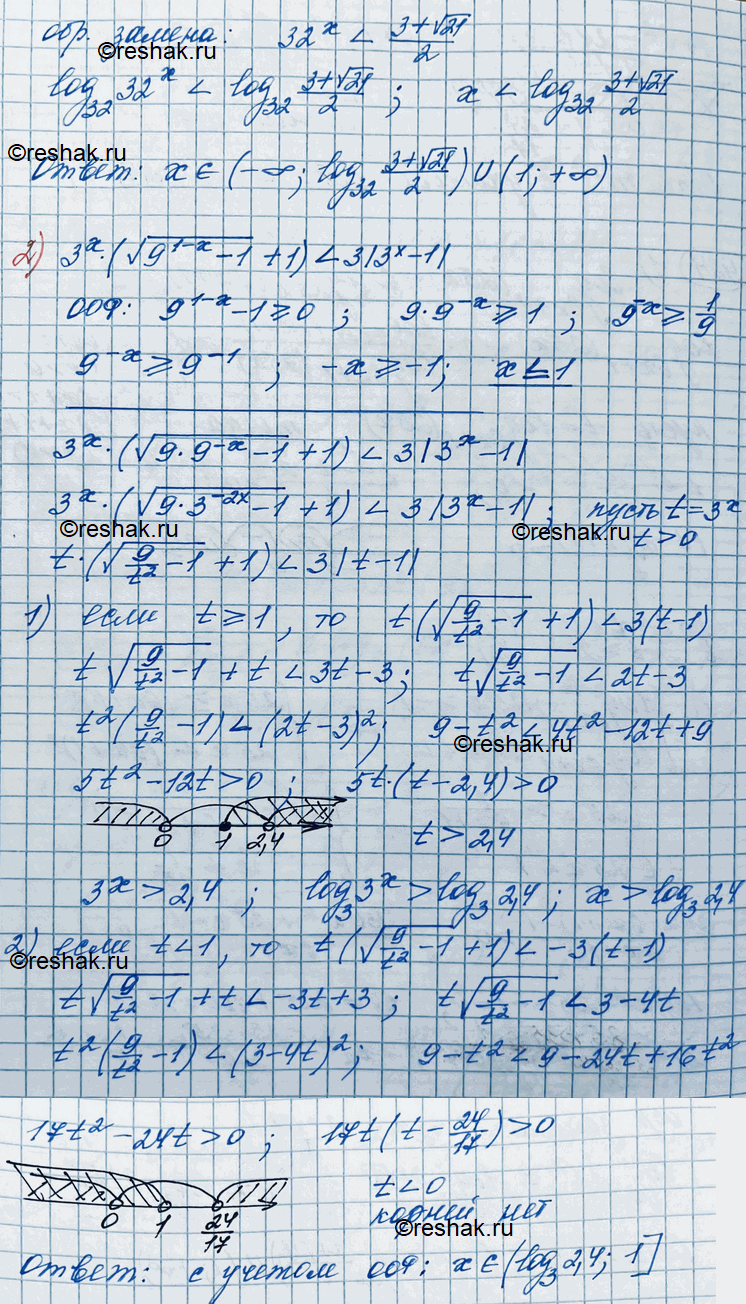 обр. замена: 32^x < (3+√21)/2
©reshak.ru
log_32 32^x < log_32 (3+√21)/2 ; x < log_32 (3+√21)/2
©reshak.ru
Ответ: x ∈ (-∞; log_32 (3+√21)/2) ∪ (1; +∞)
2) 3^x·(√(9^(1-x)-1)+1) < 3|3^x-1|
ООФ: 9^(1-x)-1 ≥ 0 ; 9·9^(-x) ≥ 1 ; 9^(-x) ≥ 1/9
9^(-x) ≥ 9^(-1) ; -x ≥ -1; x ≤ 1
3^x·(√(9·9^(-x)-1)+1) < 3|3^x-1|
3^x·(√(9·3^(-2x)-1)+1) < 3|3^x-1| ; пусть t=3^x
©reshak.ru ©reshak.ru t>0
t·(√(9/t²-1)+1) < 3|t-1|
1) если t ≥ 1, то t(√(9/t²-1)+1) < 3(t-1)
t√(9/t²-1)+t < 3t-3; t√(9/t²-1) < 2t-3
t²(9/t²-1) < (2t-3)²; 9-t² < 4t²-12t+9
©reshak.ru
5t²-12t>0 ; 5t·(t-2,4)>0
0 1 2,4 t>2,4
3^x>2,4 ; log_3 3^x > log_3 2,4 ; x > log_3 2,4
2) если t<1, то t(√(9/t²-1)+1) < -3(t-1)
©reshak.ru
t√(9/t²-1)+t < -3t+3 ; t√(9/t²-1) < 3-4t
t²(9/t²-1) < (3-4t)²; 9-t² < 9-24t+16t²
17t²-24t>0 ; 17t(t-24/17)>0
0 1 24/17 t<0
корней нет
©reshak.ru
Ответ: с учетом ООФ: x ∈ (log_3 2,4; 1]